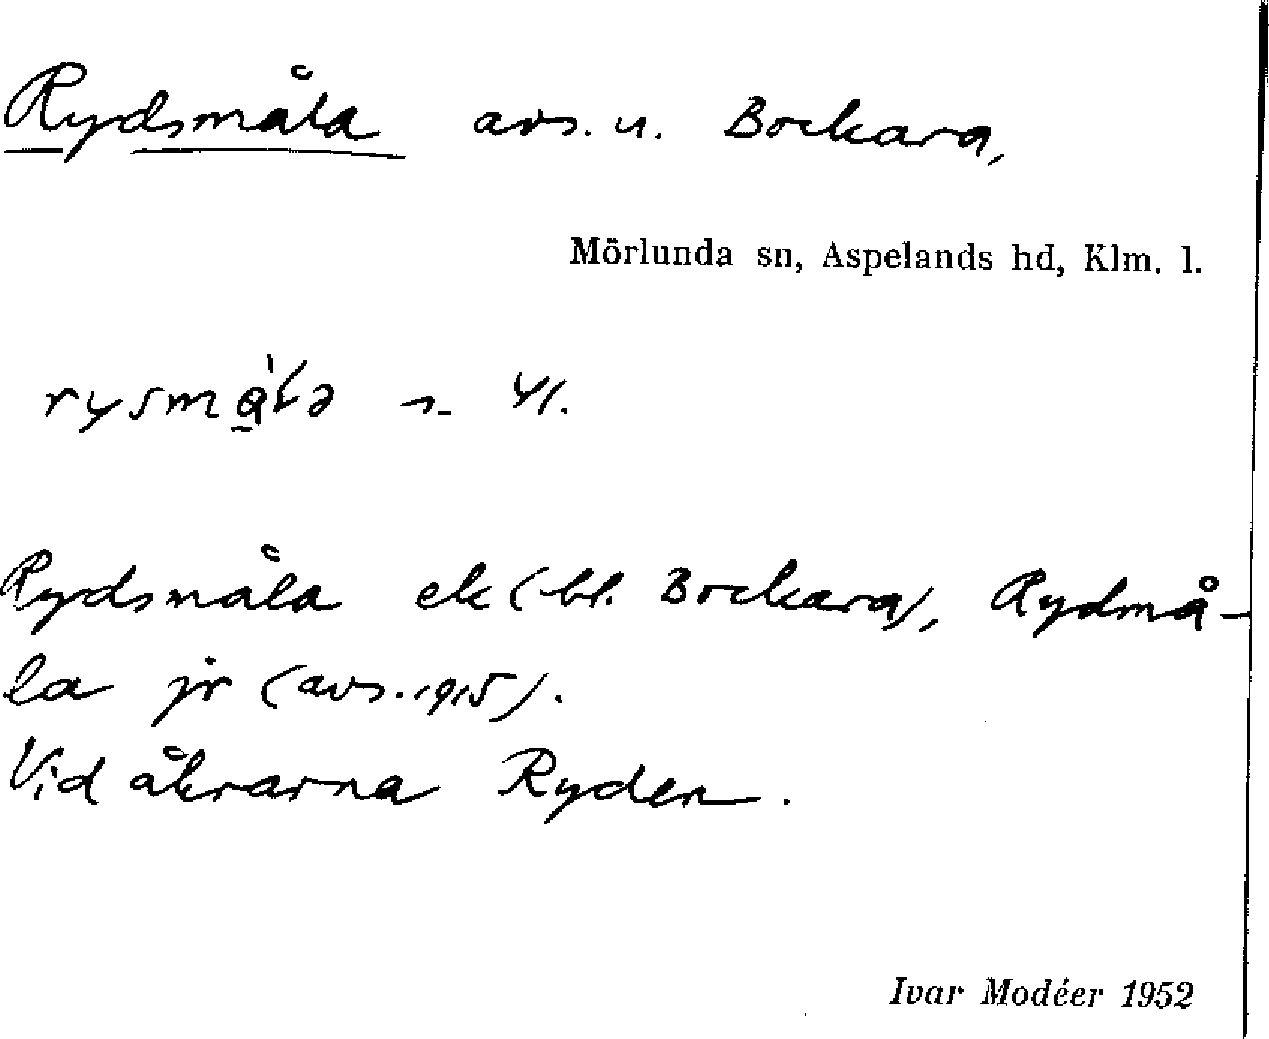 Rydsmåla avs. u. Bockara,
Mörlunda sn, Aspelands hd, Klm. l.
n. Yl.
Rydsmåla ek (bl. Bockara), Rydmå-
la jr (avs. 1915).
Vid åkrarna Ryden.
Ivar Modéer 1952